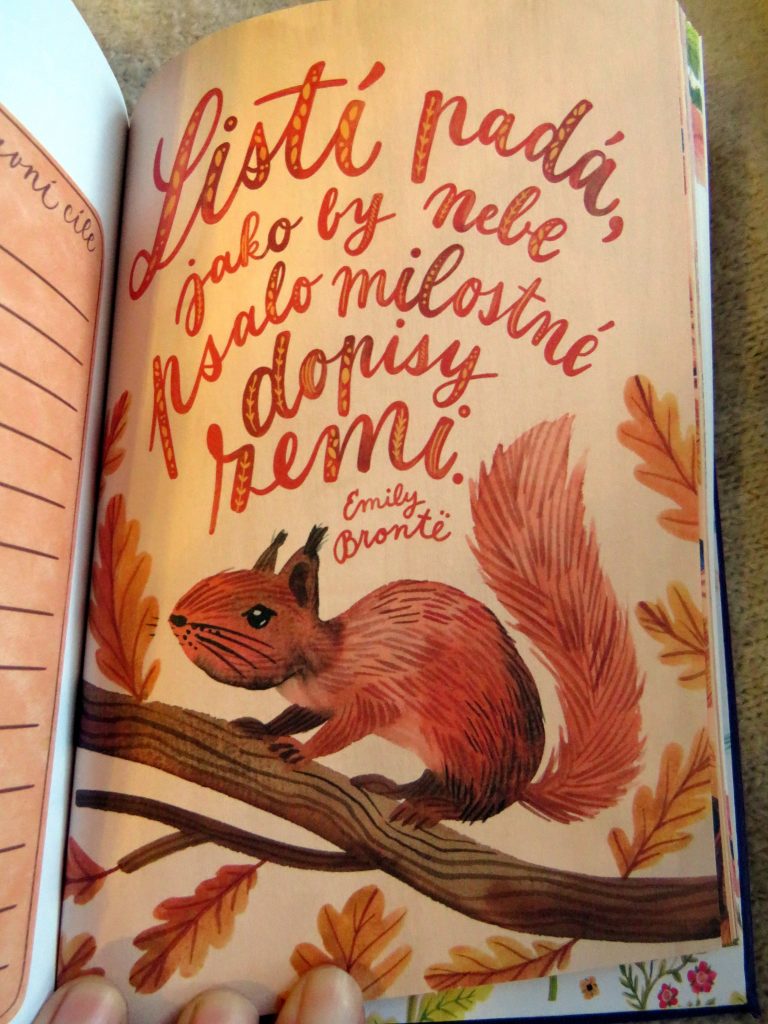 cíle
Listí padá,
jako by nebe
psalo milostné
dopisy
zemi.
Emily
Brontë